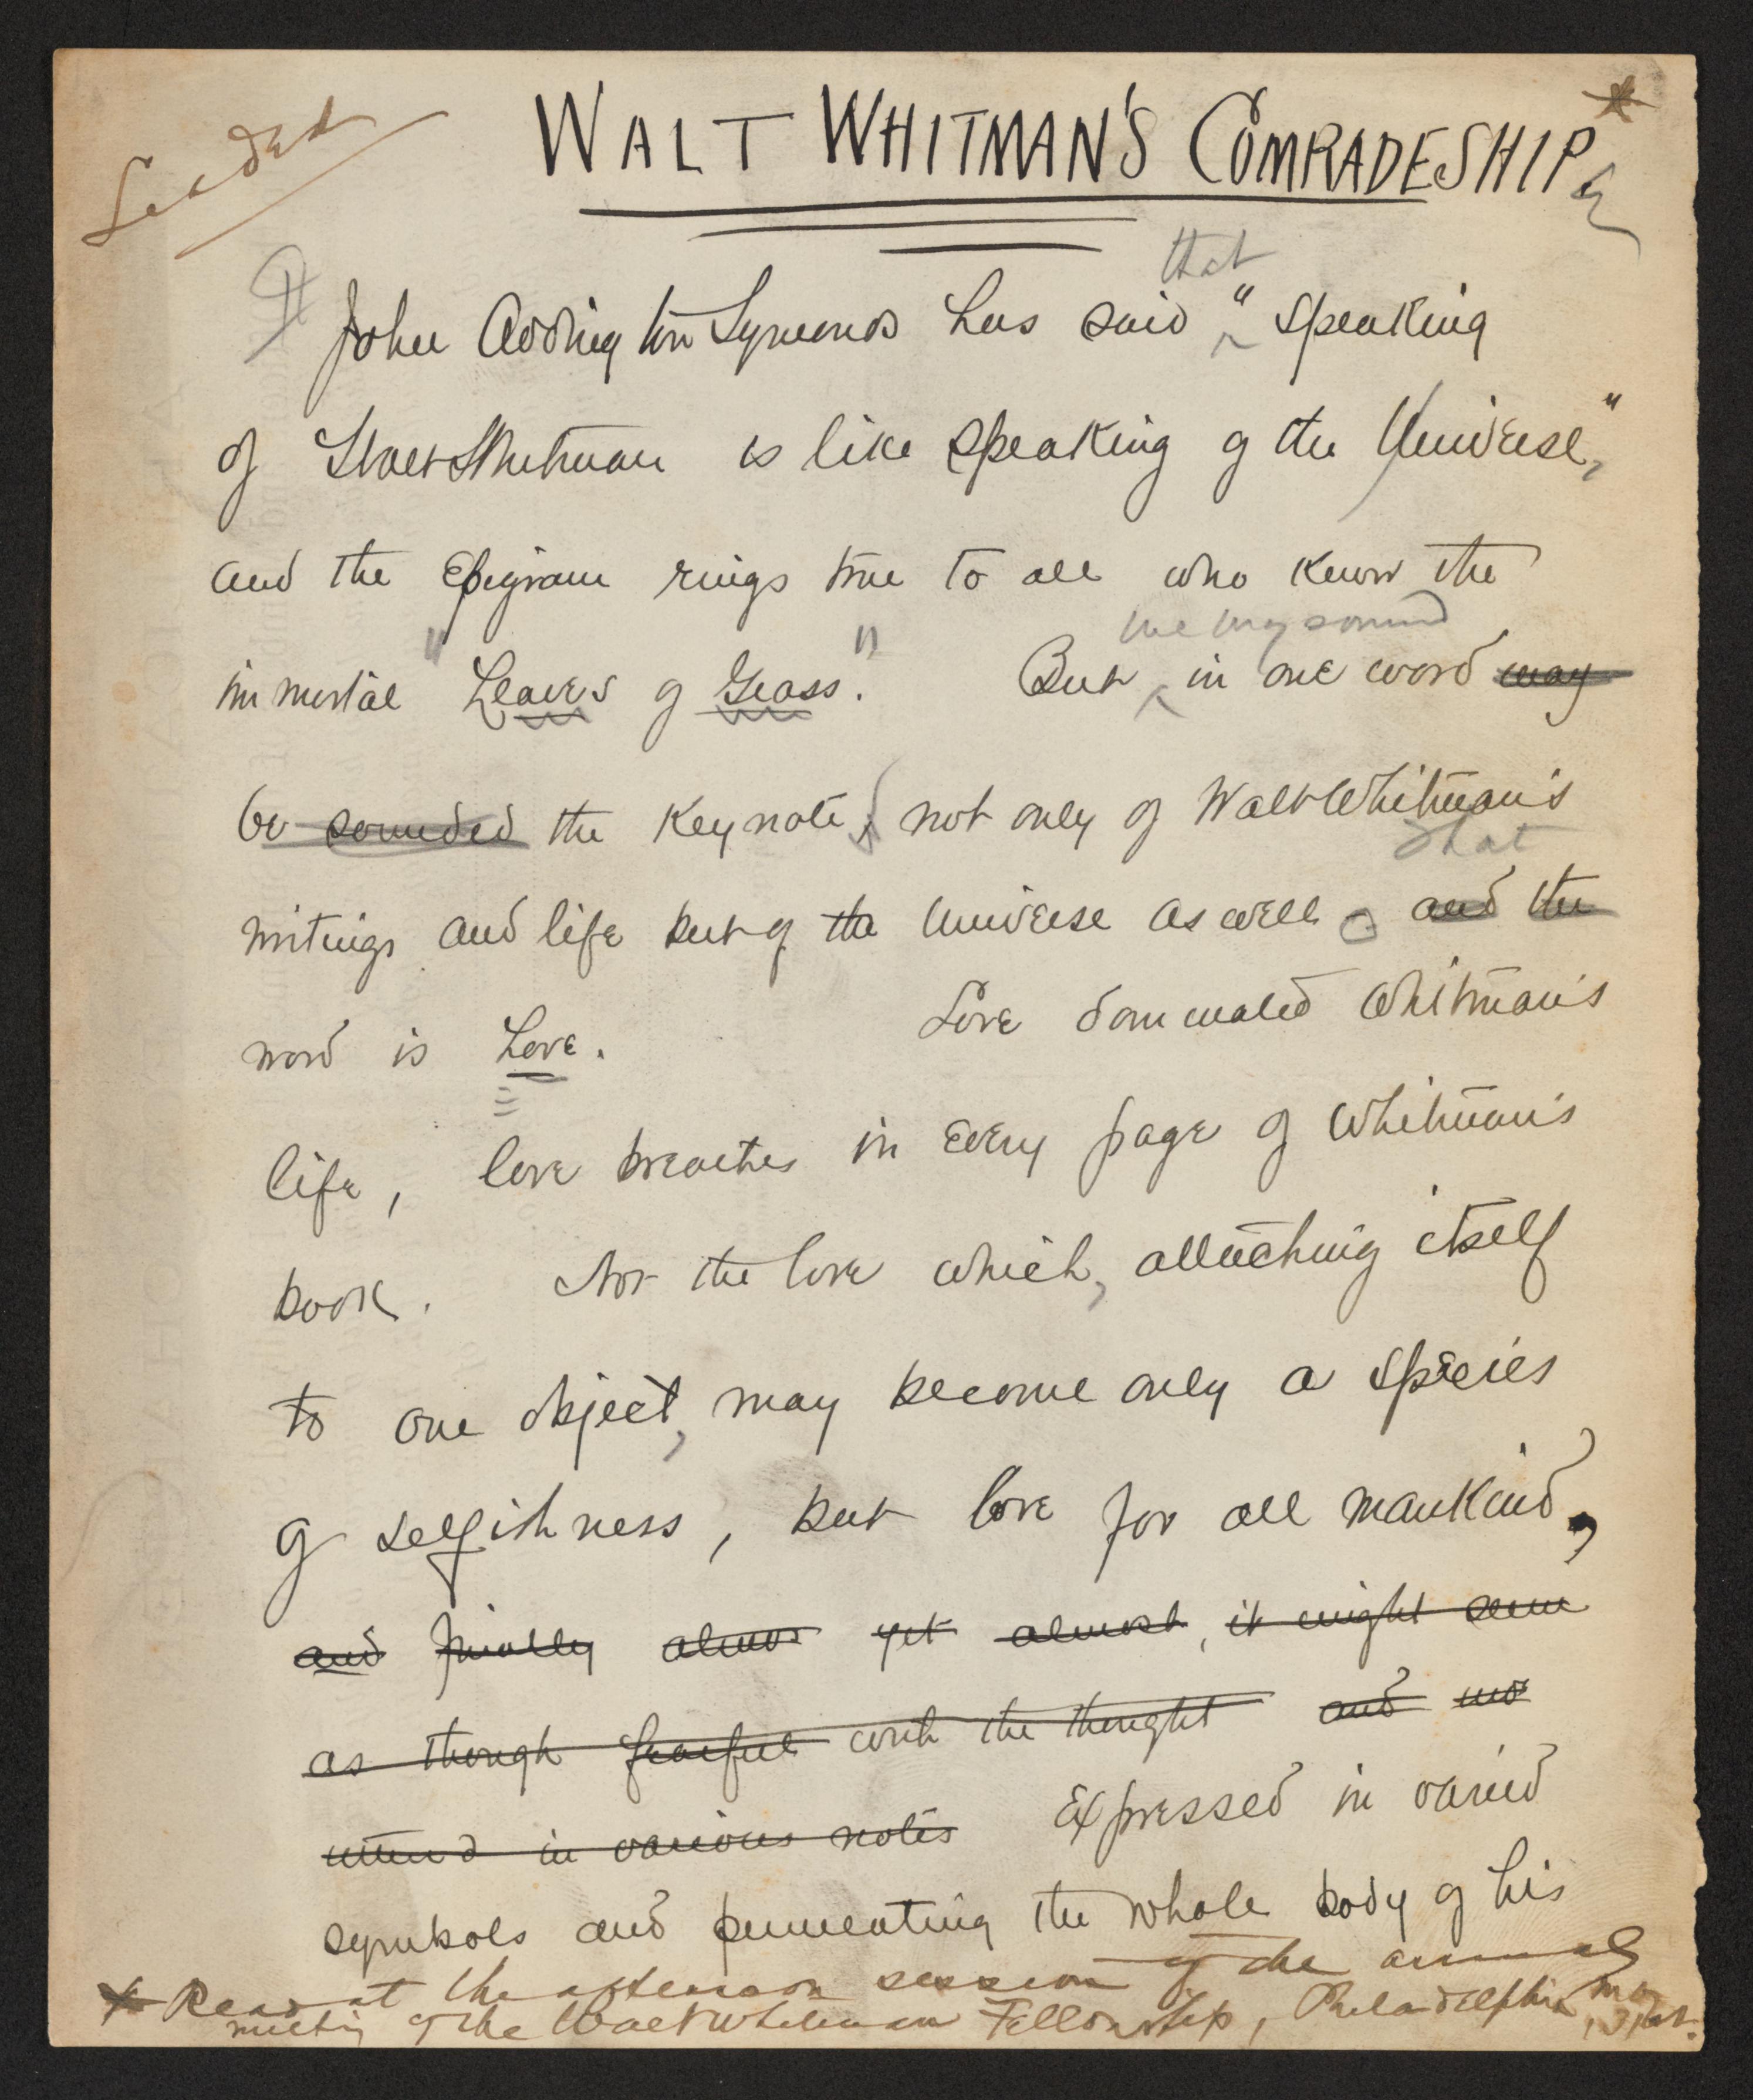 Leaded
WALT WHITMAN'S COMRADESHIP *
that
John Addington Symonds has said "speaking
of Walt Whitman is like speaking of the Universe,"
and the epigram rings true to all who know the
we may sound
immortal "Leaves of Grass." But in one word may
be sounded the keynote, not only of Walt Whitman's
that
writings and life but of the Universe as well and the
word is Love. Love dominated Whitman's
life, love breathes in every page of Whitman's
book. Not the love which, attaching itself
to one object, may become only a species
of selfishness, but love for all mankind,
and finally almos yet almost, it might seem
as though fearful with the thought and
uttered in various notes Expressed in varied
symbols and permeating the whole body of his
* Read at the afternoon session of the annual
meeting of the Walt Whitman Fellowship, Philadelphia, May
31st.